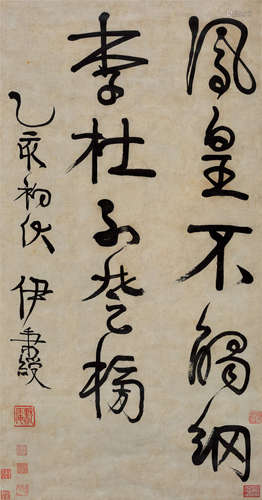 鳳皇不觸網
李杜不登榜
乙亥初伏 伊秉綬